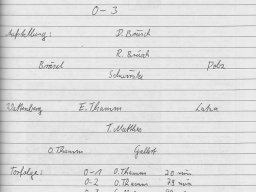 0-3
Aufstellung: D. Brüsch
R. Brüsch
Brösel Polz
Schwinke
Wattenberg E. Thamm Laka
T. Matthes
O. Thamm Gallert
Torfolge: 0-1 O. Thamm 20 min
0-2 O. Thamm 78 min